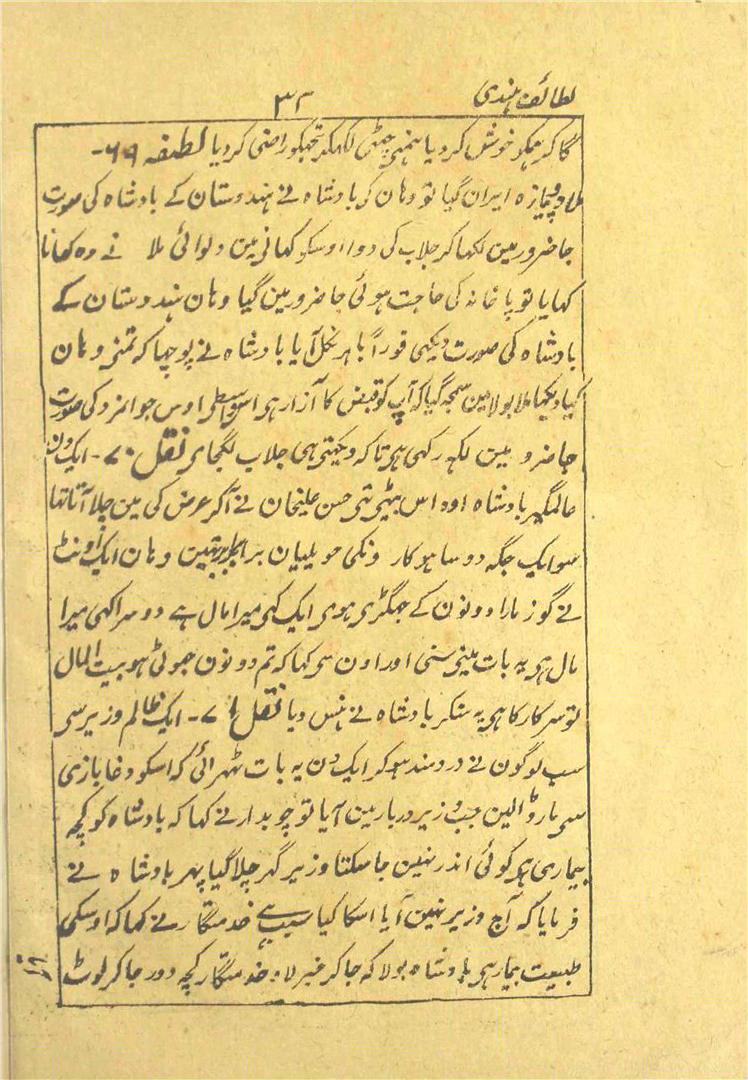 لطائف ہندی ۳۲
گا کر ہمکو خوش کر دیا ہمنی چٹی لکھکر تجھکو راضی کر دیا لطیفہ ۶۹-
ملا دوپیازہ ایران گیا تو وہان کی بادشاہ نے ہندوستان کے بادشاہ کی صورت
جاضرور مین لکھا کر جلاب کی دوا اوسکو کہانی مین دلوائی ملا نے وہ کہانا
کہایا تو پاخانہ کی حاجت ہوئی جاضرور مین گیا وہان ہندوستان کے
بادشاہ کی صورت دیکہی فوراً باہر نکل آیا بادشاہ نے پوچہا کہ تمنی وہان
کیا دیکہا ملا بولا مین سمجہ گیا کہ آپ کو قبض کا آزار ہی اس واسطی اوس جوانمرد کی صورت
جاضرور مین لکہہ رکہی ہی تاکہ دیکہتی ہی جلاب لگجای نقل ۷۰- ایک دن
عالمگیر بادشاہ اوداس بیٹہی تہی حسن علیخان نے آکر عرض کی مین چلا آتا تہا
سو ایک جگہ دو ساہوکارونکی حویلیان برابر برابر تہین وہان ایک اونٹ
نے گوز مارا دونون کے جہگڑی ہوی ایک کہی میرا مال ہے دوسرا کہی میرا
مال ہی یہ بات مینی سنی اور اون سی کہا کہ تم دونون جہوٹی ہو بیت المال
تو سرکار کا ہی یہ سنکر بادشاہ نے ہنس دیا نقل ۷۱- ایک ظالم وزیر سی
سب لوگون نے دردمند ہوکر ایک دن یہ بات ٹہرائی کہ اسکو دغا بازی
سی مار ڈالین جب وزیر دربار مین آیا تو چوبدار نے کہا کہ بادشاہ کو کچہ
بیماری ہی کوئی اندر نہین جا سکتا وزیر گہر چلا گیا پہر بادشاہ نے
فرمایا کہ آج وزیر نہین آیا اسکا کیا سبب ہے خدمتگار نے کہا کہ اوسکی
طبیعت بیمار ہی بادشاہ بولا کہ جا کر خبر لاو خدمتگار کچہ دور جا کر لوٹ